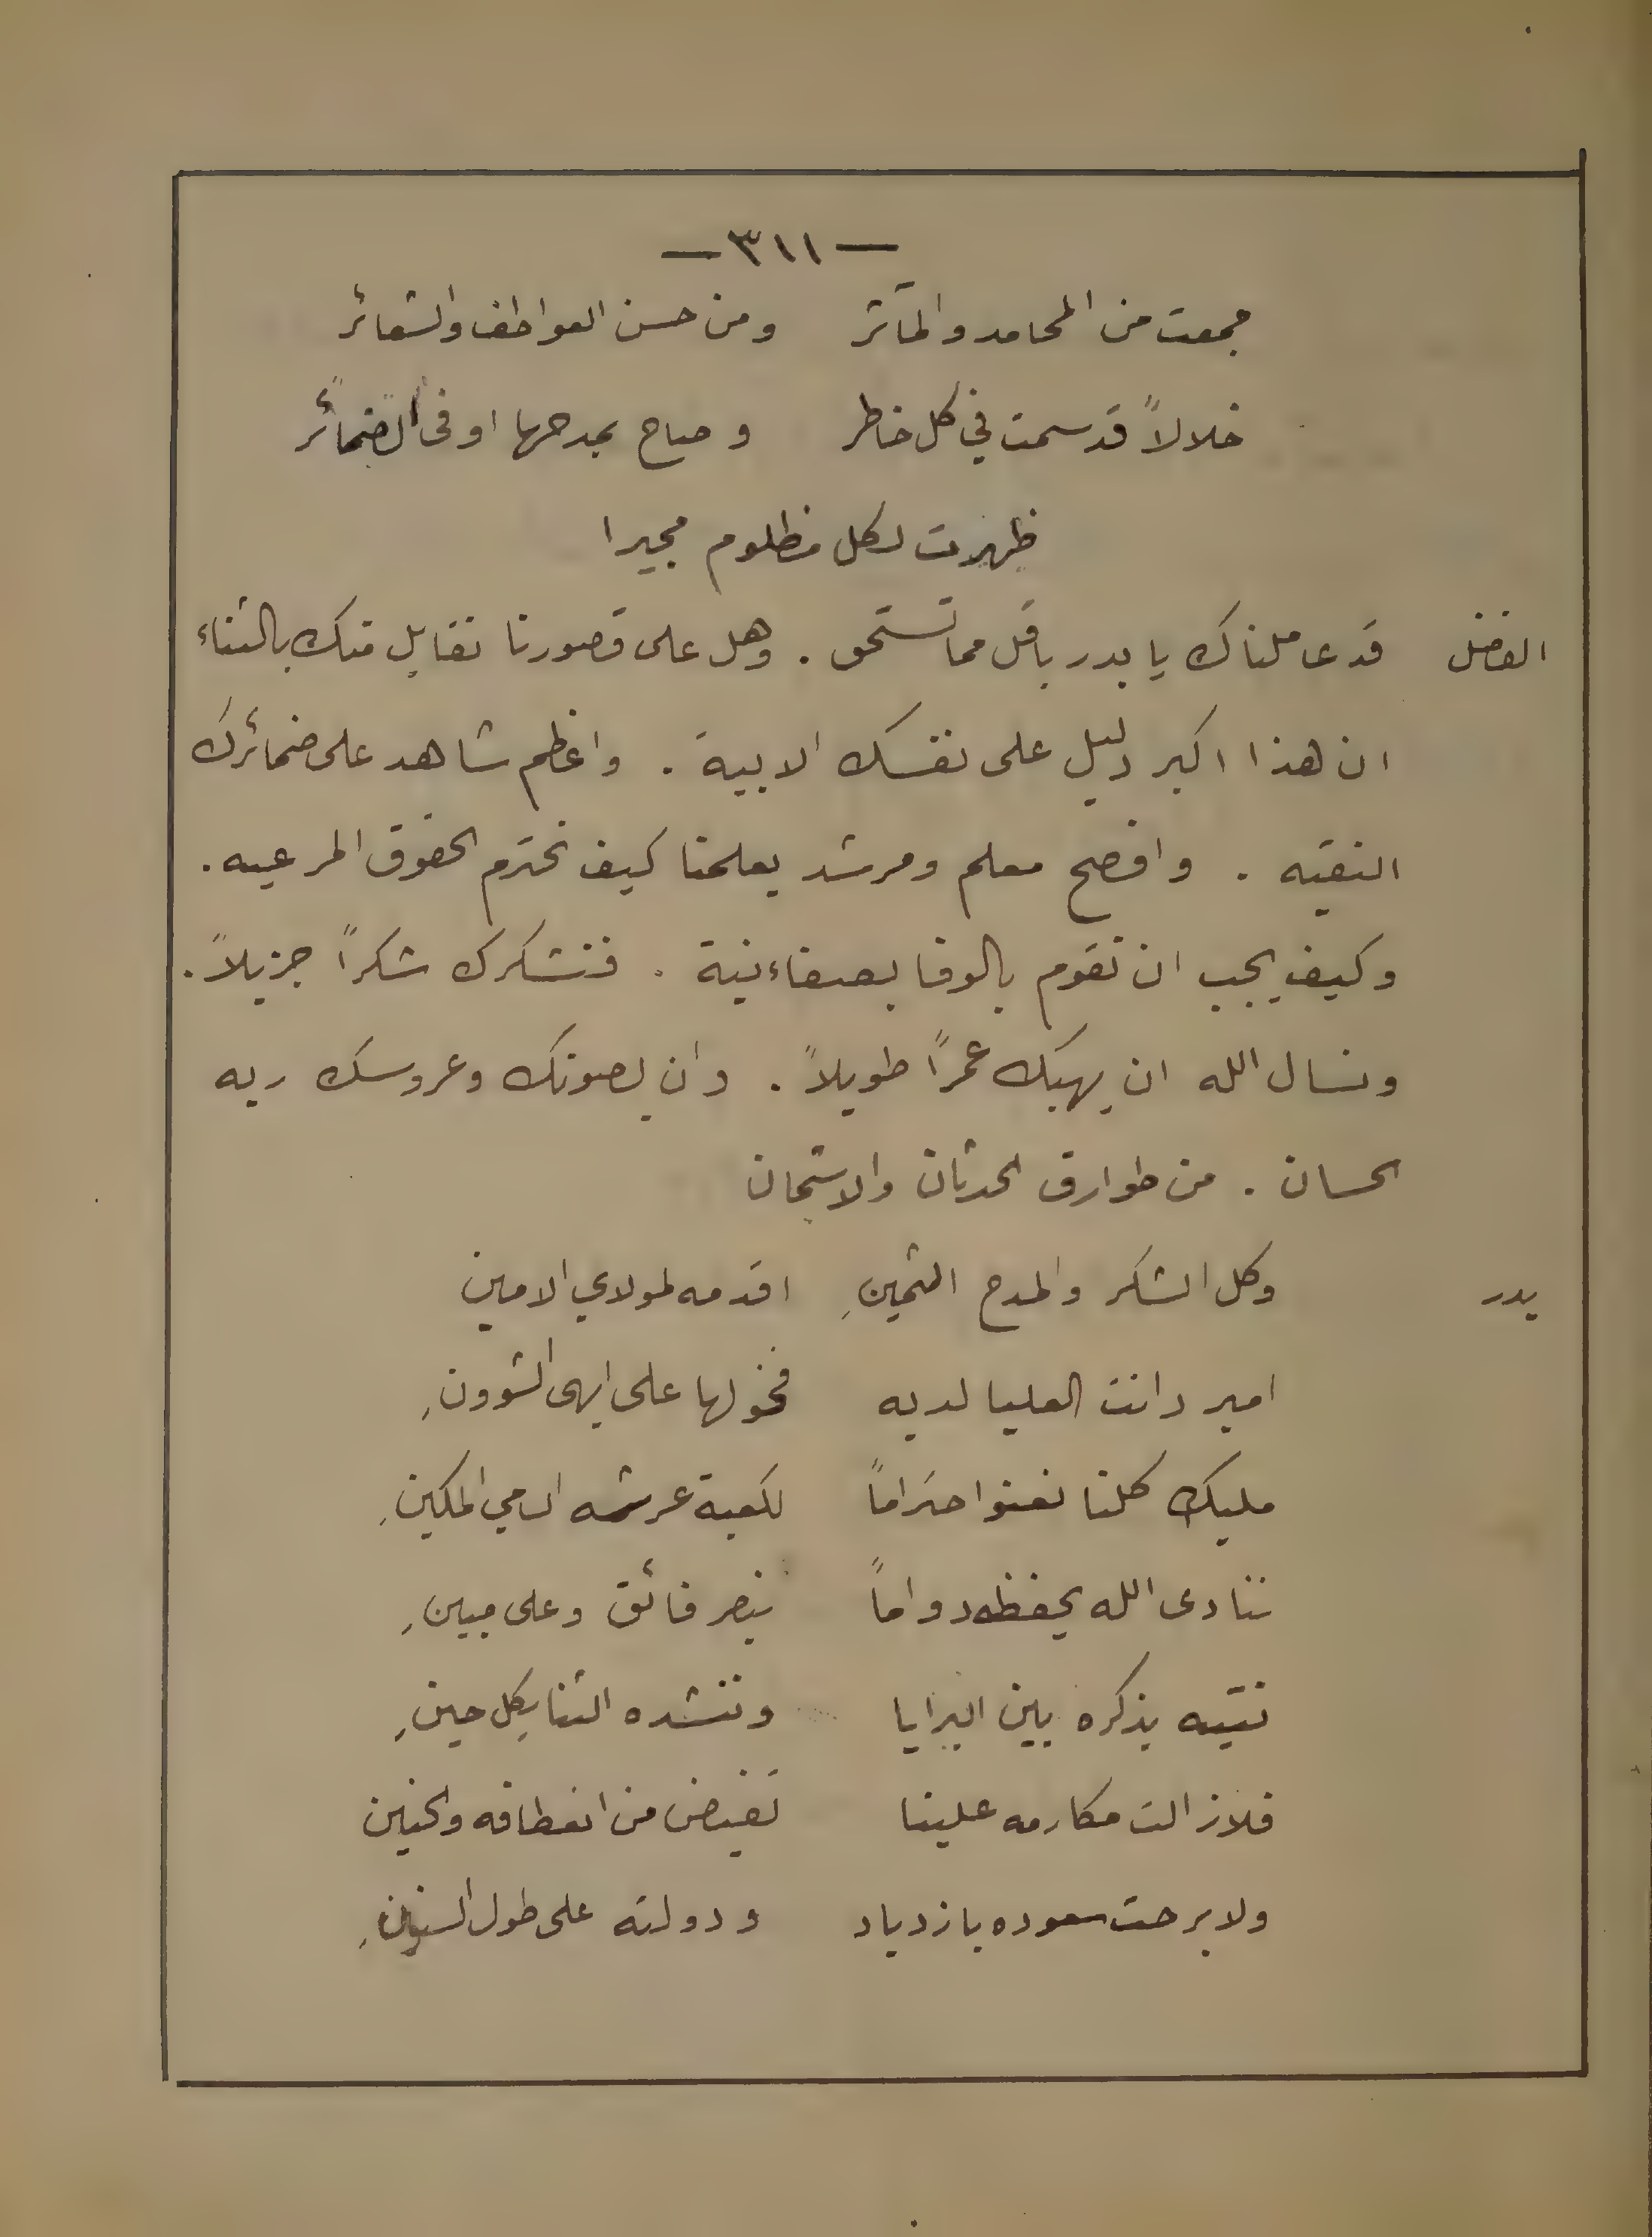 — ٣١١ —
جمعت من المحامد والمآثر ومن حسن العواطف والشعائر
خلالاً قد سمت في كل خاطر وصاح بمدحها اوفى الضمائر
ظهرت لكل مظلوم مجيرا
الفضل قد عاملناك يا بدر باقل مما تستحق . وهل على قصورنا نقابل منك بالثناء
ان هذا اكبر دليل على نفسك الابية . واعظم شاهد على ضمائرك
النقيه . وافصح معلم ومرشد يعلمنا كيف نحترم الحقوق المرعيه .
وكيف يجب ان نقوم بالوفا بصفاء نية . فنشكرك شكراً جزيلاً .
ونسال الله ان يهبك عمراً طويلاً . وان يصونك وعروسك ربه
الحسان . من طوارق الحدثان والاشجان
بدر وكل الشكر والمدح الثمينِ اقدمه لمولاي الامين
امير دانت العليا لديه فخولها على ابهى الشوونِ
مليك كلنا نعنو احتراماً لكعبة عرشه السامي المكينِ
ننادى الله يحفظه دواماً بنصر فائق وعلى مبينِ
نتيه بذكره بين البرايا وننشده الثنا بكل حينِ
فلا زالت مكارمه علينا تفيض من انعطافه والحنين
ولا برحت سعوده بازدياد ودولته على طول السنينِ